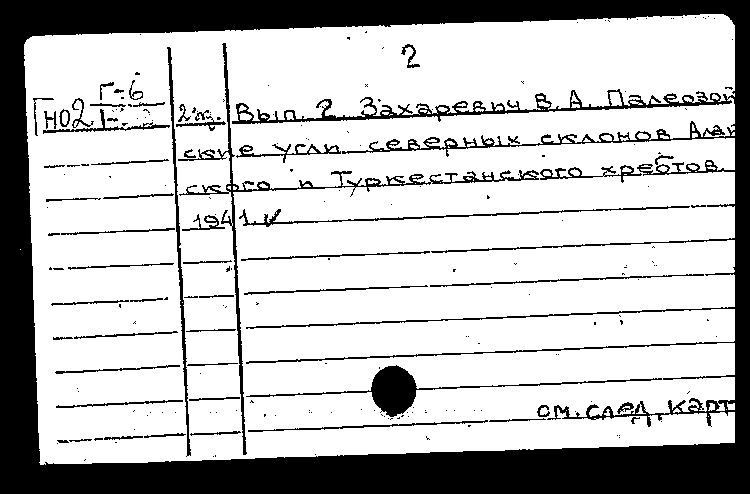 2
Г-6
НО2
2 эк. Вып. 2. Захаревич В. А. Палеозой
ские угли северных склонов Алай
ского и Туркестанского хребтов.
1941. ✓
см. след. карт